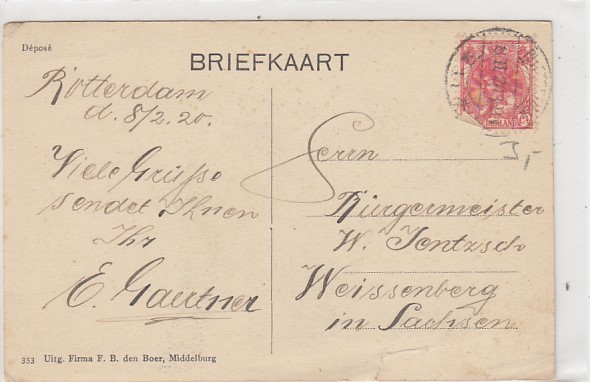 Déposé
BRIEFKAART
Rotterdam
d. 8/2. 20.
Viele Grüsse
sendet Ihnen
Ihr
E. Gaertner
Herrn
Bürgermeister
W. Jentzsch
Weissenberg
in Sachsen.
3,-
353 Uitg. Firma F. B. den Boer, Middelburg